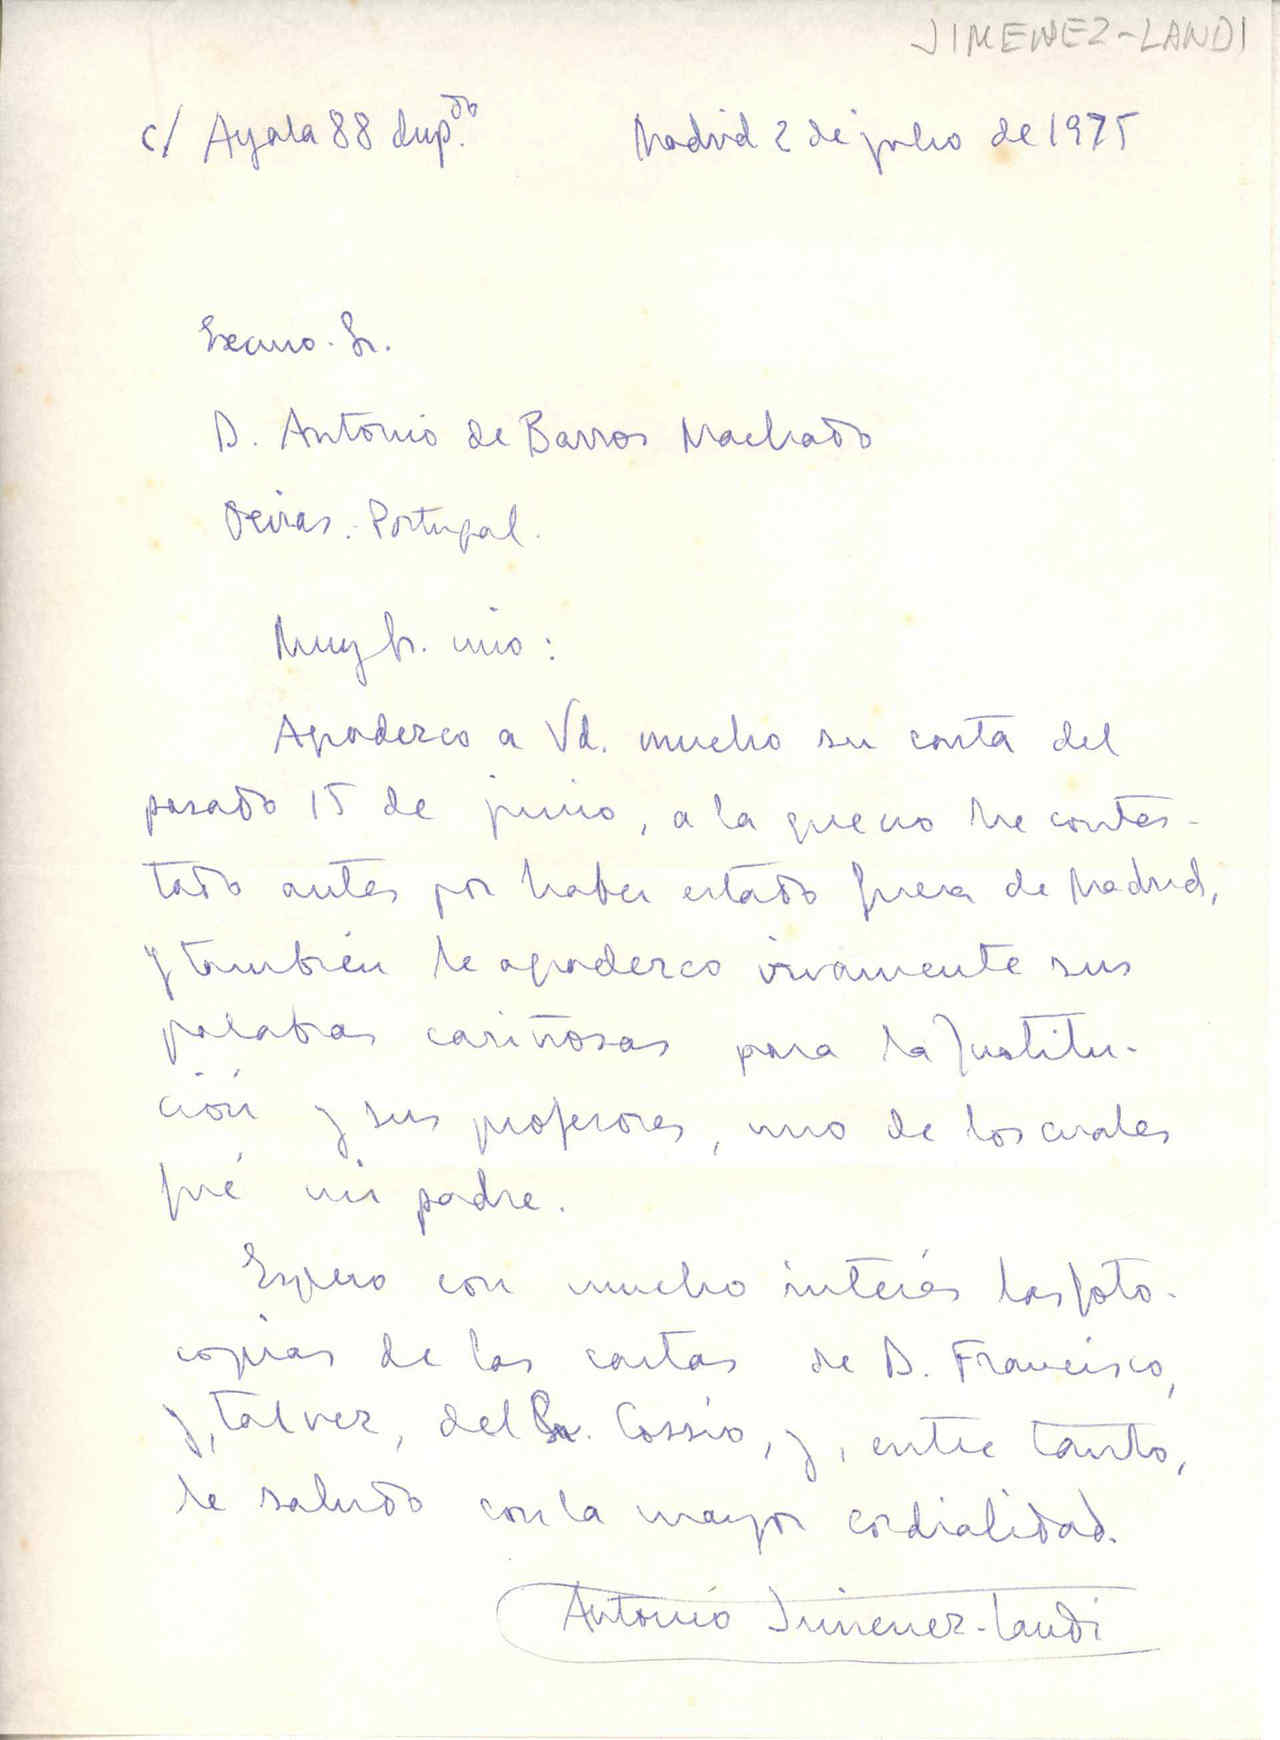 JIMENEZ-LANDI
c/ Ayala 88 dup.do Madrid 2 de julio de 1975
Excmo. Sr.
D. Antonio de Barros Machado
Oeiras.- Portugal.
Muy Sr. mio:
Agradezco a Vd. mucho su carta del
pasado 15 de junio, a la que no he contes-
tado antes por haber estado fuera de Madrid,
y también le agradezco vivamente sus
palabras cariñosas para la Institu-
ción y sus profesores, uno de los cuales
fué mi padre.
Espero con mucho interés las foto-
copias de las cartas de D. Francisco,
y, tal vez, del Sr. Cossío, y, entre tanto,
le saludo con la mayor cordialidad.
Antonio Jimenez-Landi